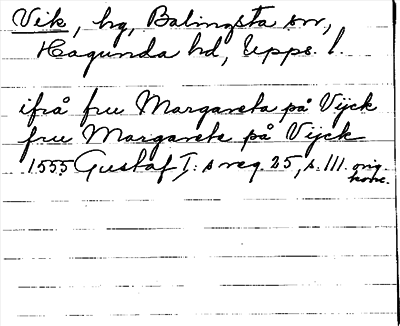 Vik, hg, Balingsta sn,
Hagunda hd, Upps. l.
ifrå fru Margareta på Vijck
fru Margarete på Vijck
1555 Gustaf I:s reg. 25, s. 111. orig.
konc.